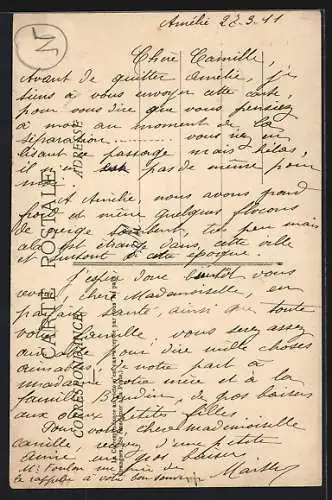 Amélie 22-3-11
Chère Camille,
Avant de quitter Amélie, je
tiens à vous envoyer cette carte,
pour vous dire que vous pensiez
à moi au moment de la
séparation vous riez en
lisant ce passage mais hélas,
il n'en est pas de même pour
moi.
A Amélie, nous avons grand
froid et même quelques flocons
de neige tombent, très peu mais
cela est étrange dans cette ville
et surtout à cette époque.
J'espère donc bientôt vous
revoir, chère Mademoiselle, en
parfaite santé, ainsi que toute
votre famille, vous serez assez
aimable pour dire mille choses
aimables de notre part à
madame votre mère et à la
famille de gros baisers
aux deux petites filles
Pour vous chère mademoiselle
Camille recevez d'une petite
amie un gros baiser
Mr Foulon me prie de
le rappeler à votre bon souvenir
CARTE POSTALE
CORRESPONDANCE
ADRESSE